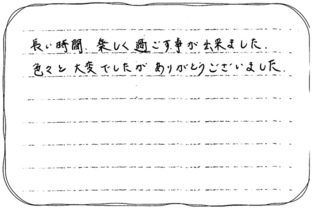 長い時間、楽しく過ごす事が出来ました。
色々と大変でしたがありがとうございました。